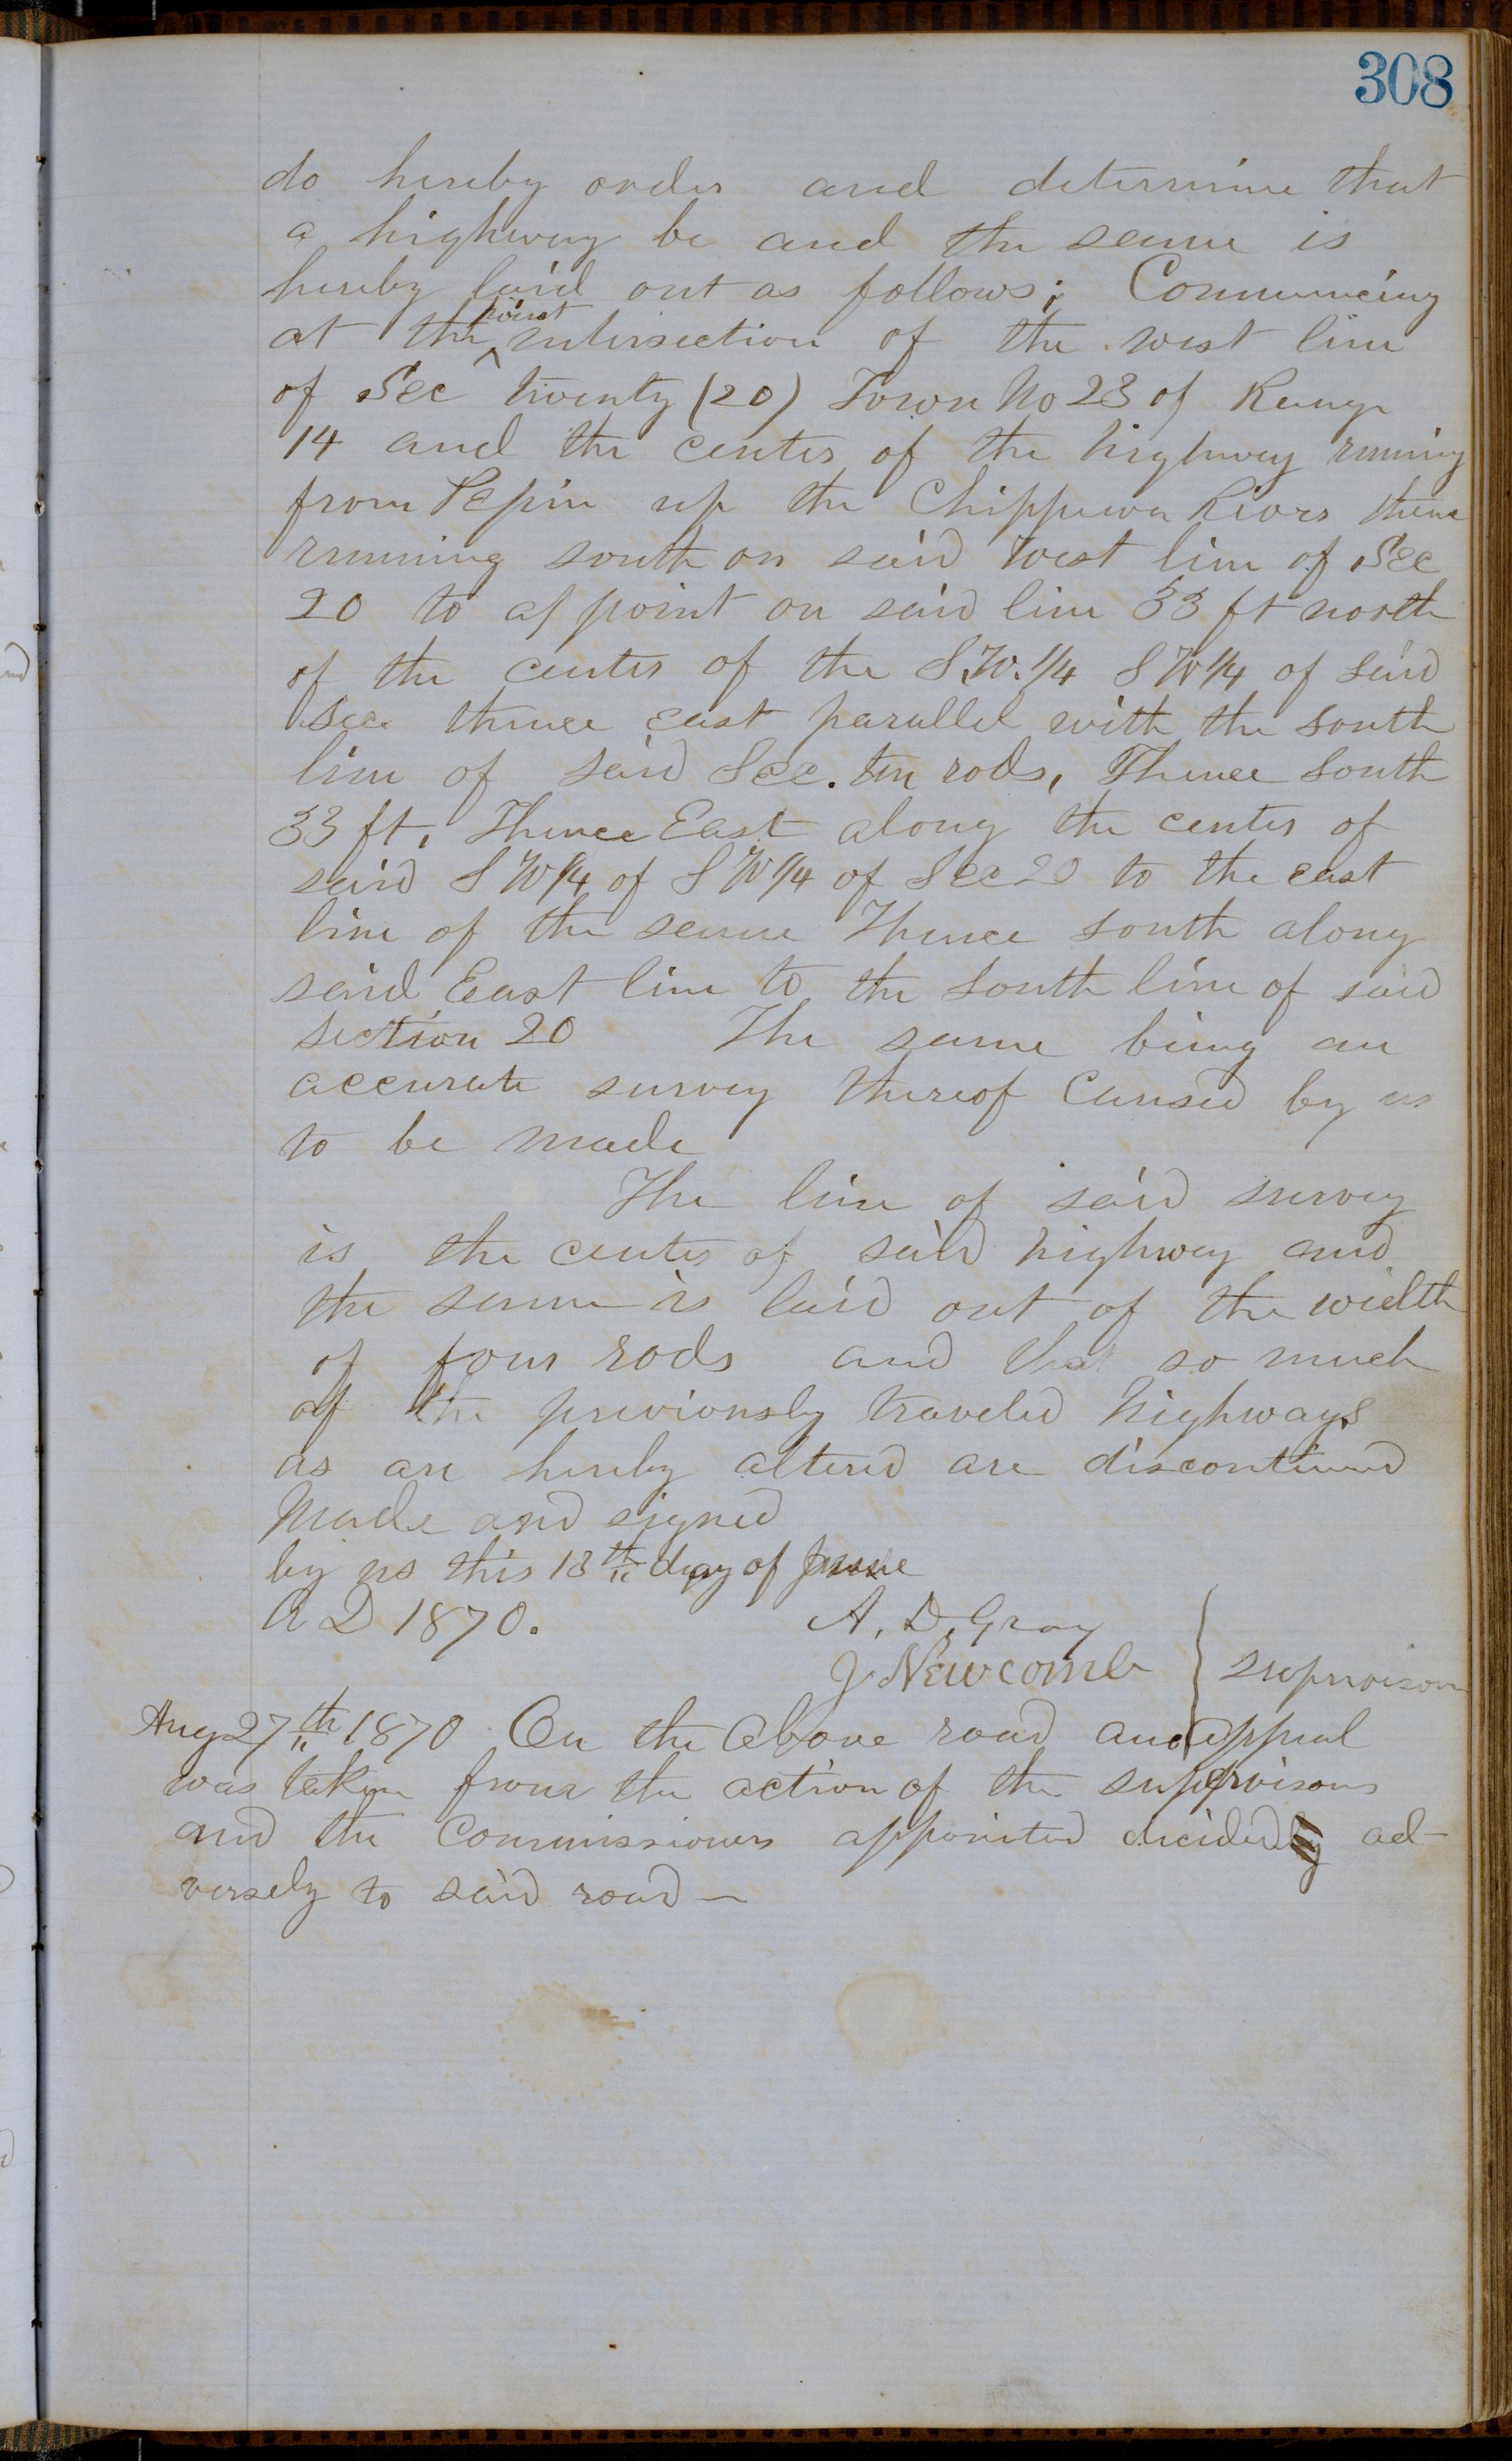 308
do hereby order and determine that
a highway be and the same is
hereby laid out as follows; Commencing
point
at the ^ intersection of the west line
of Sec twenty (20) Town No 23 of Range
14 and the center of the highway runing
from Pepin up the Chippewa River thence
running south on said West line of Sec
20 to a point on said line 33 ft north
of the center of the S.W. 1/4 S W 1/4 of said
Sec thence east parallel with the south
line of said Sec. ten rods, Thence South
33 ft, Thence East along the center of
said S W 1/4 of S W 1/4 of Sec 20 to the east
line of the same Thence south along
said East line to the South line of said
section 20 The same being an
accurate survey thereof Caused by us
to be made
The line of said survey
is the center of said highway and
the same is laid out of the width
of four rods and that so much
of the previously traveled highways
as are hereby altered are discontinued
Made and signed
by us this 18th day of June
A D 1870.
A. D. Gray
J Newcomb } supervisors
Aug 27th 1870 On the above road an appeal
was taken from the action of the supervisors
and the Commissioners appointed decided ad-
versely to said road —